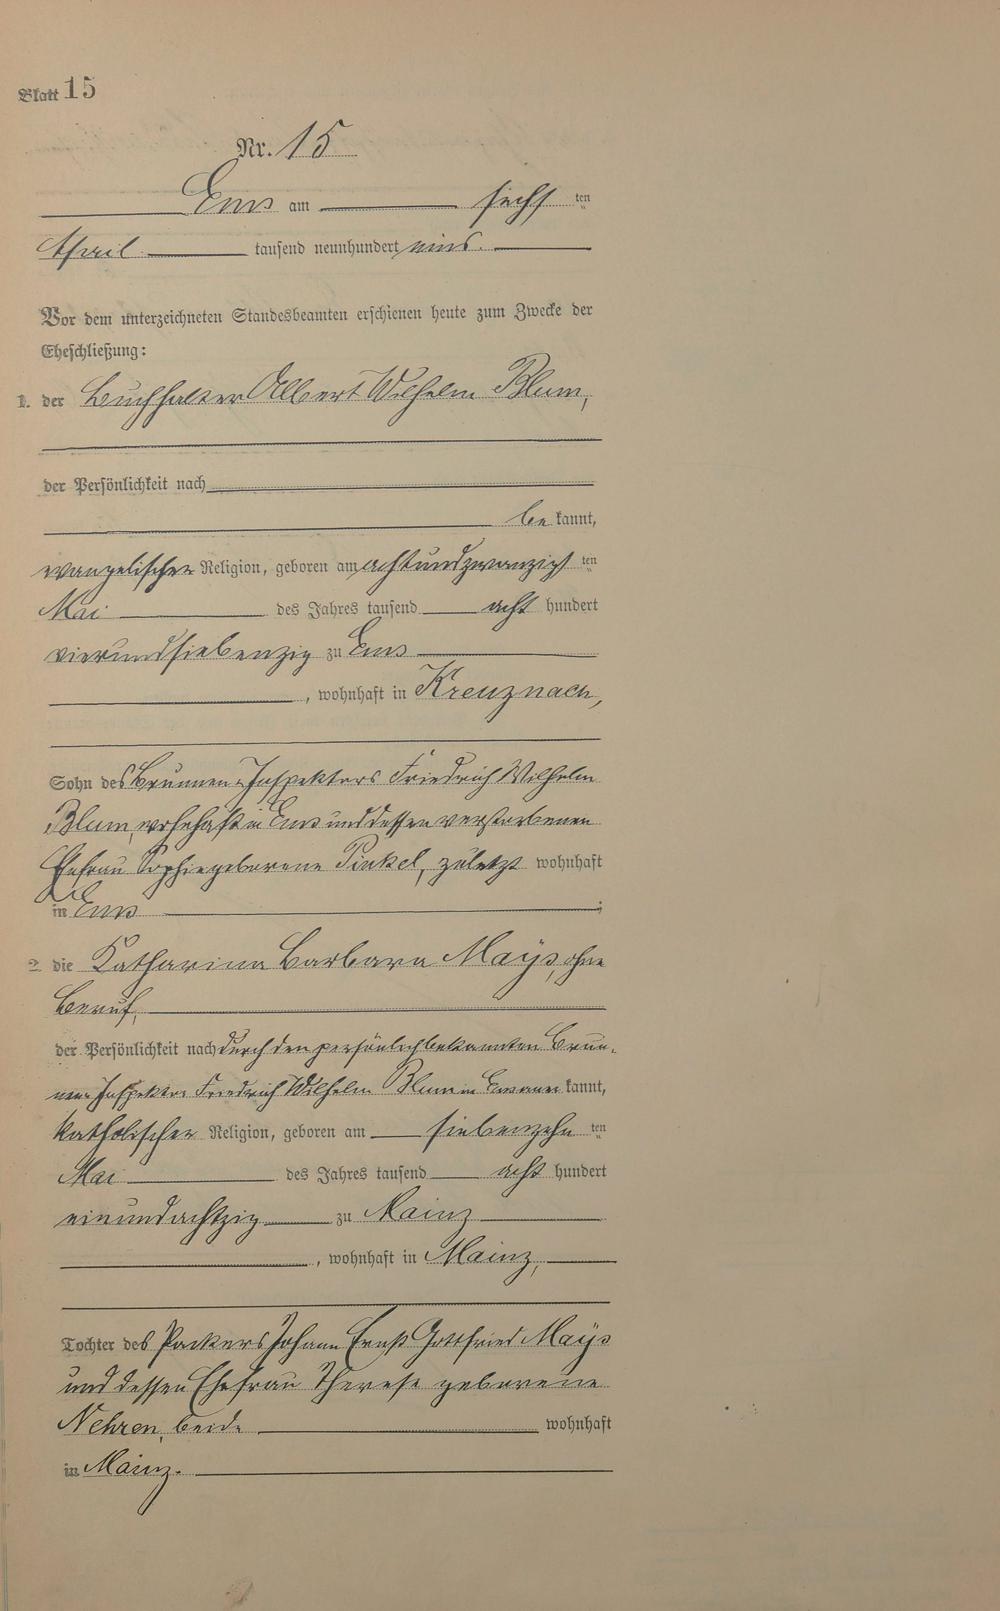 Blatt 15
Nr. 15
Ems am sechsten
April tausend neunhundert eins.
Vor dem unterzeichneten Standesbeamten erschienen heute zum Zwecke der
Eheschließung:
1. der Buchhalter Albert Wilhelm Blum,
der Persönlichkeit nach
bekannt,
evangelischer Religion, geboren am achtundzwanzigsten
Mai des Jahres tausend acht hundert
vierundsiebenzig zu Ems
, wohnhaft in Kreuznach,
Sohn des Brunnen-Inspektors Friedrich Wilhelm
Blum, wohnhaft in Ems und dessen verstorbenen
Ehefrau Sophie geborene Pinkel, zuletzt wohnhaft
in Ems ;
2. die Katharina Barbara Maÿs, ohne
Beruf,
der Persönlichkeit nach durch den persönlich bekannten Brun-
nen-Inspektor Friedrich Wilhelm Blum in Ems anerkannt,
katholischer Religion, geboren am siebenzehnten
Mai des Jahres tausend acht hundert
einundachtzig zu Mainz
, wohnhaft in Mainz,
Tochter des Packers Johann Ernst Gottfried Maÿs
und dessen Ehefrau Therese geborene
Nehren, beide wohnhaft
in Mainz.